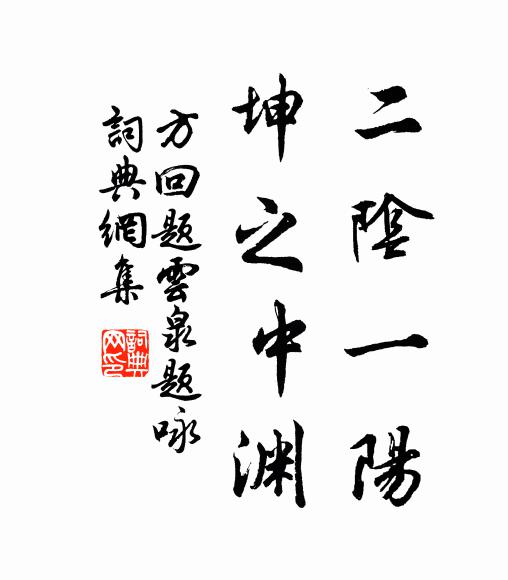 二陰一陽
坤之中淵
方回题雲泉题咏
詞典網集
詞典
网印